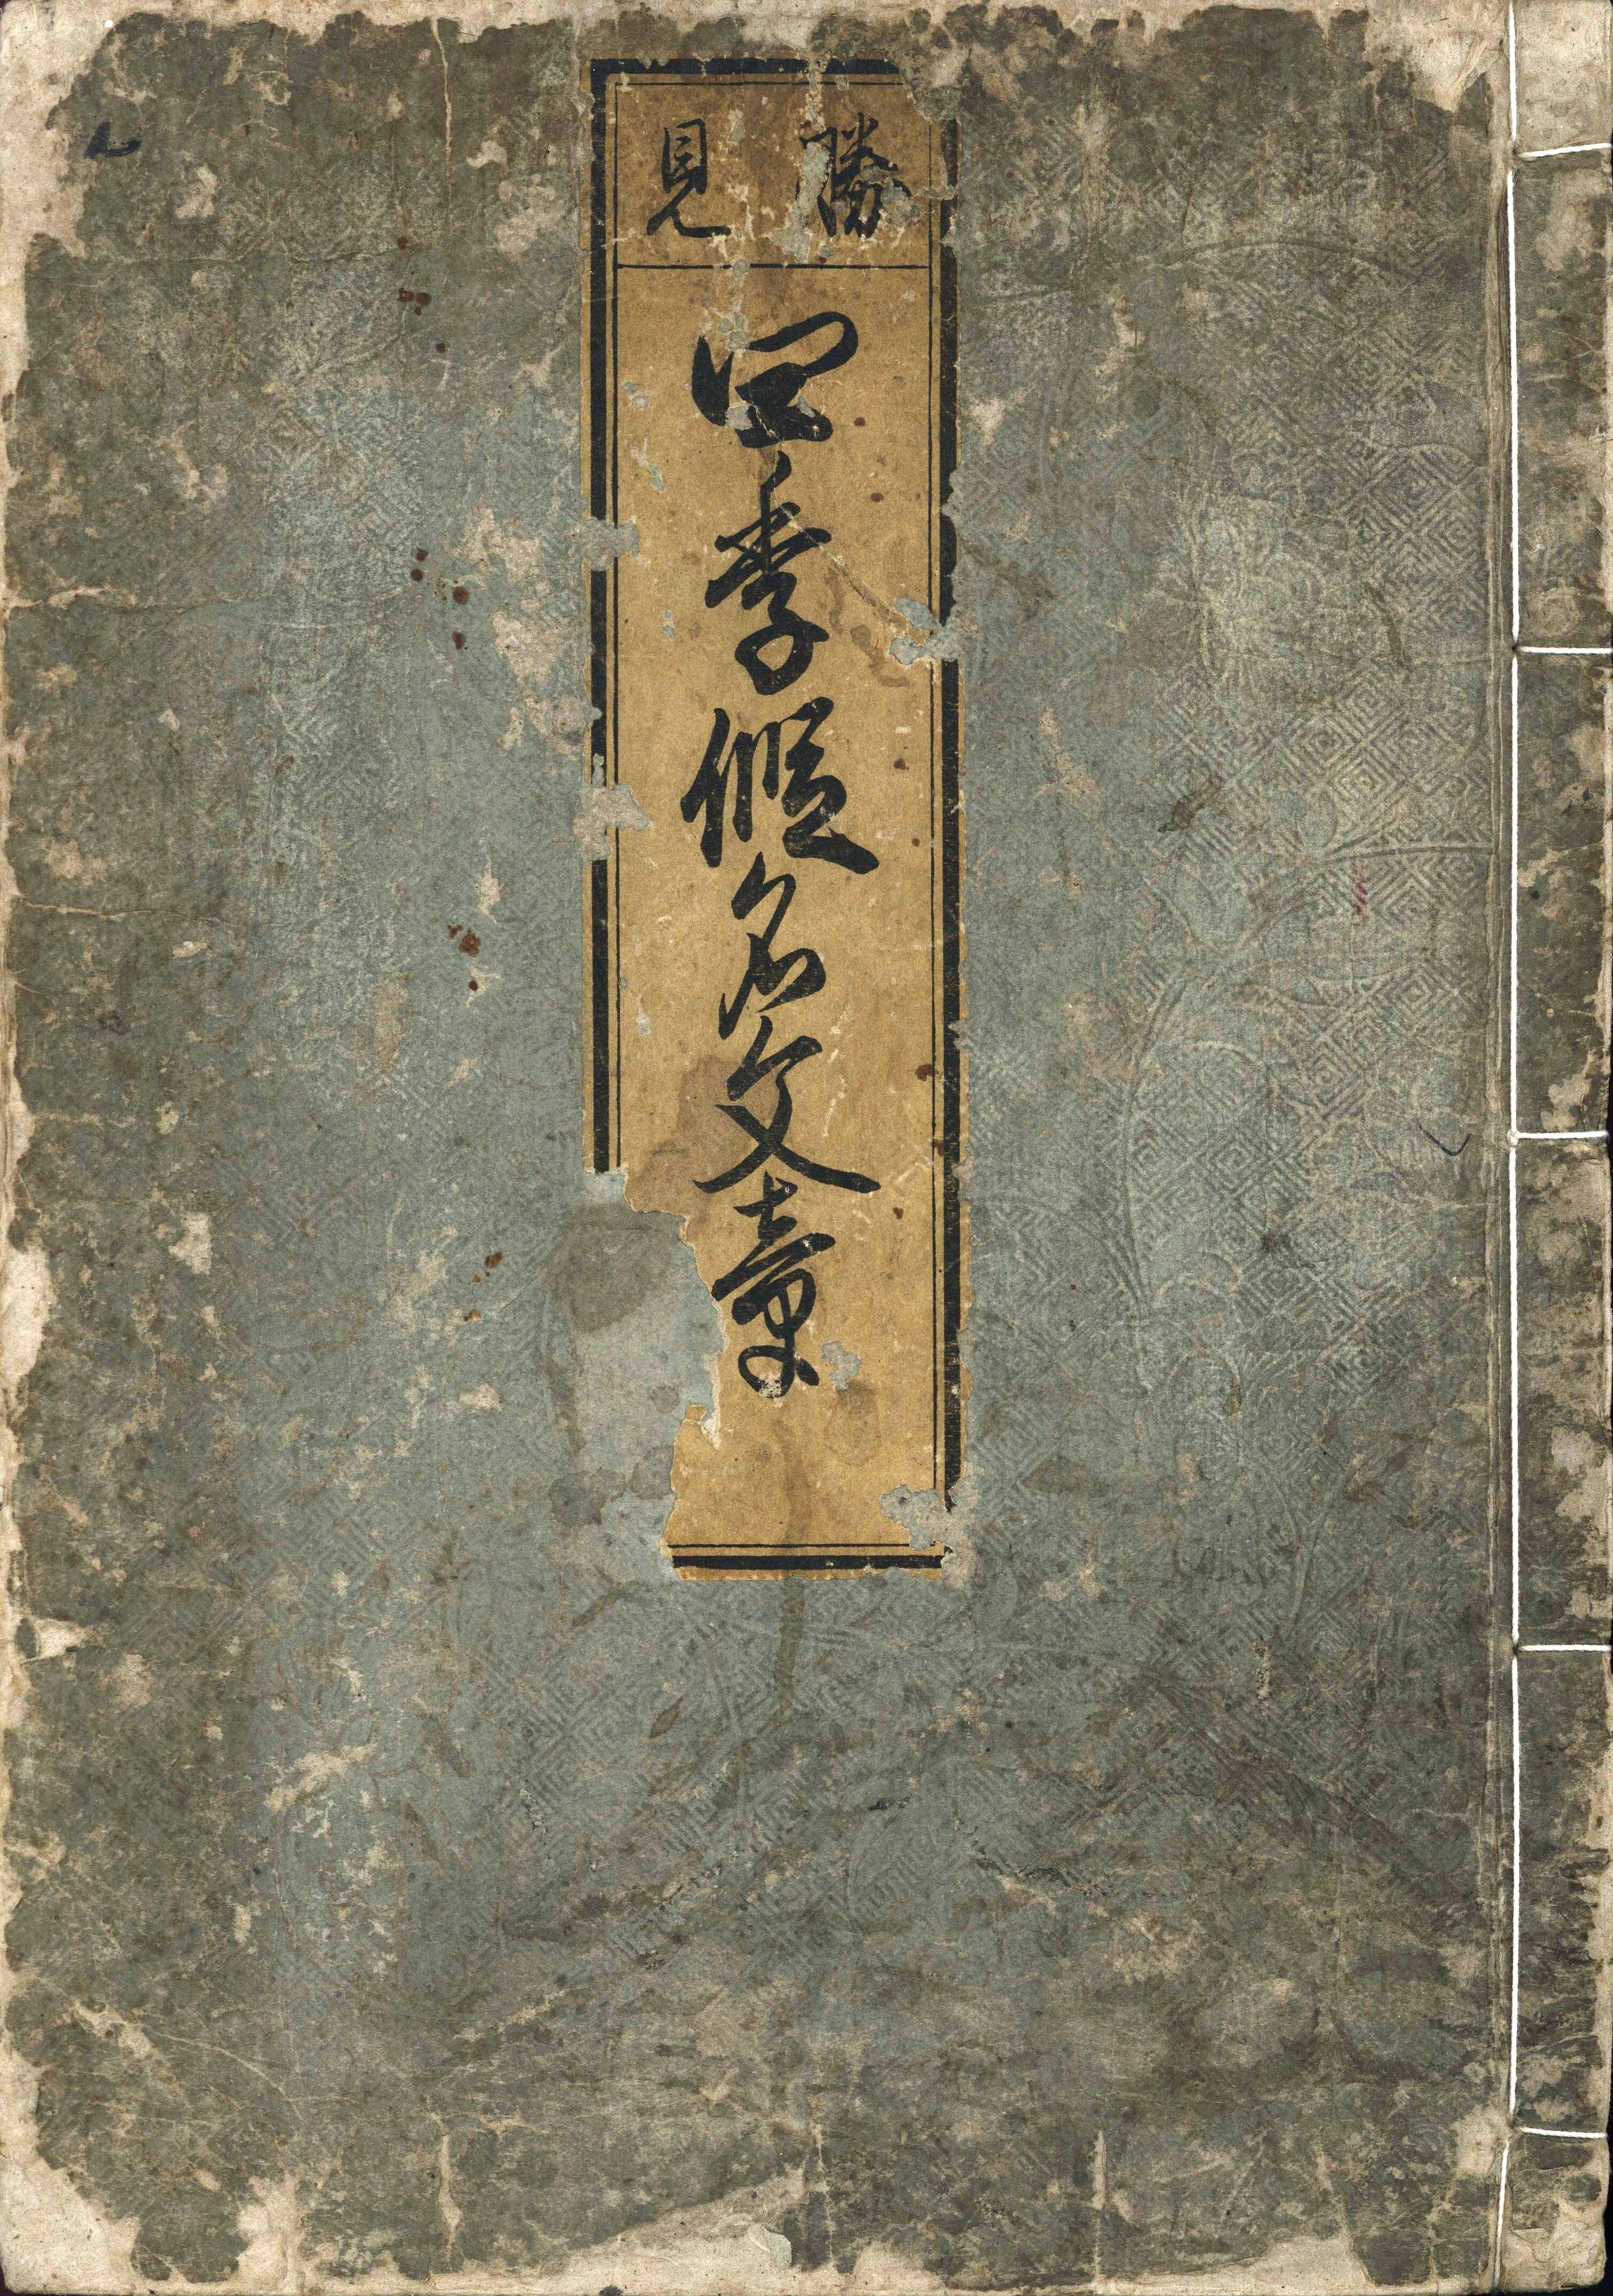 勝見
四季假名文章